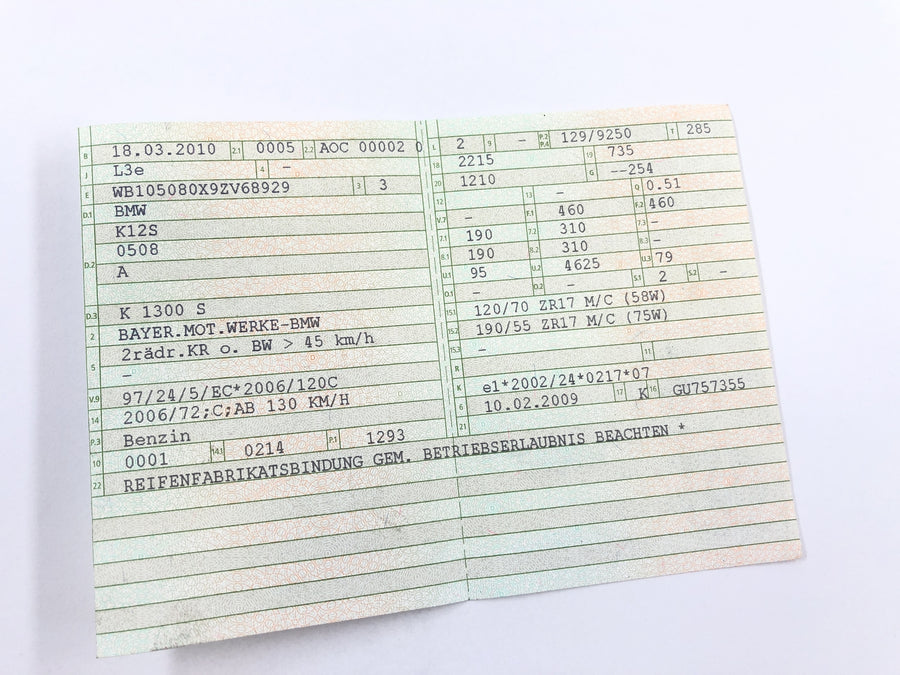 B 18.03.2010 2.1 0005 2.2 AOC 00002 0
J L3e 4 -
E WB105080X9ZV68929 3 3
D.1 BMW
K12S
0508
D.2 A
D.3 K 1300 S
2 BAYER.MOT.WERKE-BMW
5 2rädr.KR o. BW > 45 km/h
-
V.9 97/24/5/EC*2006/120C
14 2006/72;C;AB 130 KM/H
P.3 Benzin
10 0001 14.1 0214 P.1 1293
22 REIFENFABRIKATSBINDUNG GEM. BETRIEBSERLAUBNIS BEACHTEN *
L 2 9 - P.2 P.4 129/9250 T 285
18 2215 19 735
20 1210 G --254
12 13 - Q 0.51
V.7 - F.1 460 F.2 460
7.1 190 7.2 310 7.3 -
8.1 190 8.2 310 8.3 -
U.1 95 U.2 4625 U.3 79
O.1 - O.2 - S.1 2 S.2 -
15.1 120/70 ZR17 M/C (58W)
15.2 190/55 ZR17 M/C (75W)
15.3 -
R 11
K e1*2002/24*0217*07
6 10.02.2009 17 K 16 GU757355
21